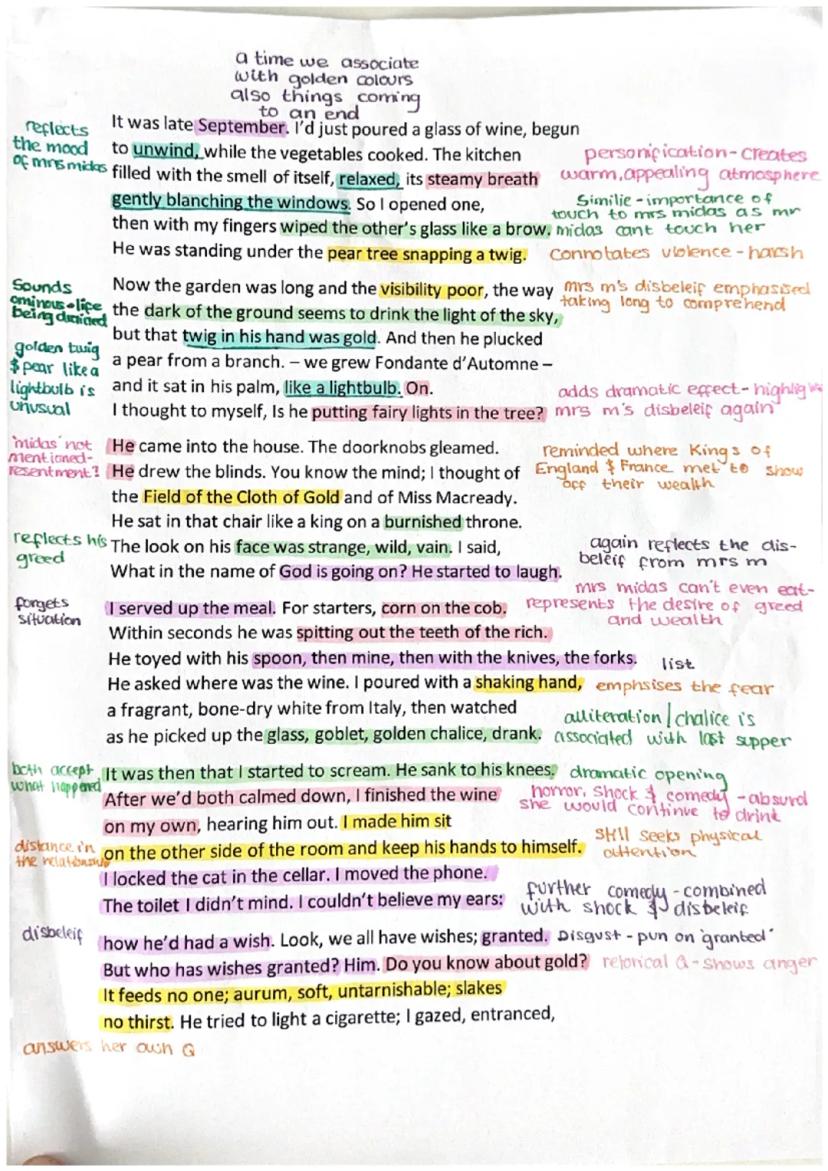 a time we associate
with golden colours
also things coming
to an end
reflects
the mood
of mrs midas
It was late September. I'd just poured a glass of wine, begun
to unwind, while the vegetables cooked. The kitchen
filled with the smell of itself, relaxed, its steamy breath
gently blanching the windows. So I opened one,
then with my fingers wiped the other's glass like a brow.
He was standing under the pear tree snapping a twig.
personification - creates
warm, appealing atmosphere
Similie - importance of
touch to mrs midas as mr
midas cant touch her
connotates violence - harsh
Sounds
ominous - life
being drained
golden twig
& pear like a
lightbulb is
unusual
Now the garden was long and the visibility poor, the way
the dark of the ground seems to drink the light of the sky,
but that twig in his hand was gold. And then he plucked
a pear from a branch. – we grew Fondante d'Automne –
and it sat in his palm, like a lightbulb. On.
I thought to myself, Is he putting fairy lights in the tree?
mrs m's disbeleif emphasised
taking long to comprehend
adds dramatic effect - highlig
mrs m's disbeleif again
'midas' not
mentioned -
resentment?
He came into the house. The doorknobs gleamed.
He drew the blinds. You know the mind; I thought of
the Field of the Cloth of Gold and of Miss Macready.
He sat in that chair like a king on a burnished throne.
The look on his face was strange, wild, vain. I said,
What in the name of God is going on? He started to laugh.
reminded where Kings of
England & France met to show
off their wealth
reflects his
greed
again reflects the dis-
beleif from mrs m
forgets
situation
I served up the meal. For starters, corn on the cob.
Within seconds he was spitting out the teeth of the rich.
He toyed with his spoon, then mine, then with the knives, the forks.
He asked where was the wine. I poured with a shaking hand,
a fragrant, bone-dry white from Italy, then watched
as he picked up the glass, goblet, golden chalice, drank.
mrs midas can't even eat-
represents the desire of greed
and wealth
list
emphsises the fear
alliteration / chalice is
associated with last supper
both accept
what happened
It was then that I started to scream. He sank to his knees.
After we'd both calmed down, I finished the wine
on my own, hearing him out. I made him sit
on the other side of the room and keep his hands to himself.
I locked the cat in the cellar. I moved the phone.
The toilet I didn't mind. I couldn't believe my ears:
dramatic opening
horror, shock & comedy - absurd
she would continue to drink
distance in
the relationship
Still seeks physical
attention
further comedy - combined
with shock & disbeleif
disbeleif
how he'd had a wish. Look, we all have wishes; granted.
But who has wishes granted? Him. Do you know about gold?
It feeds no one; aurum, soft, untarnishable; slakes
no thirst. He tried to light a cigarette; I gazed, entranced,
Disgust - pun on 'granted'
retorical Q - shows anger
answers her own Q